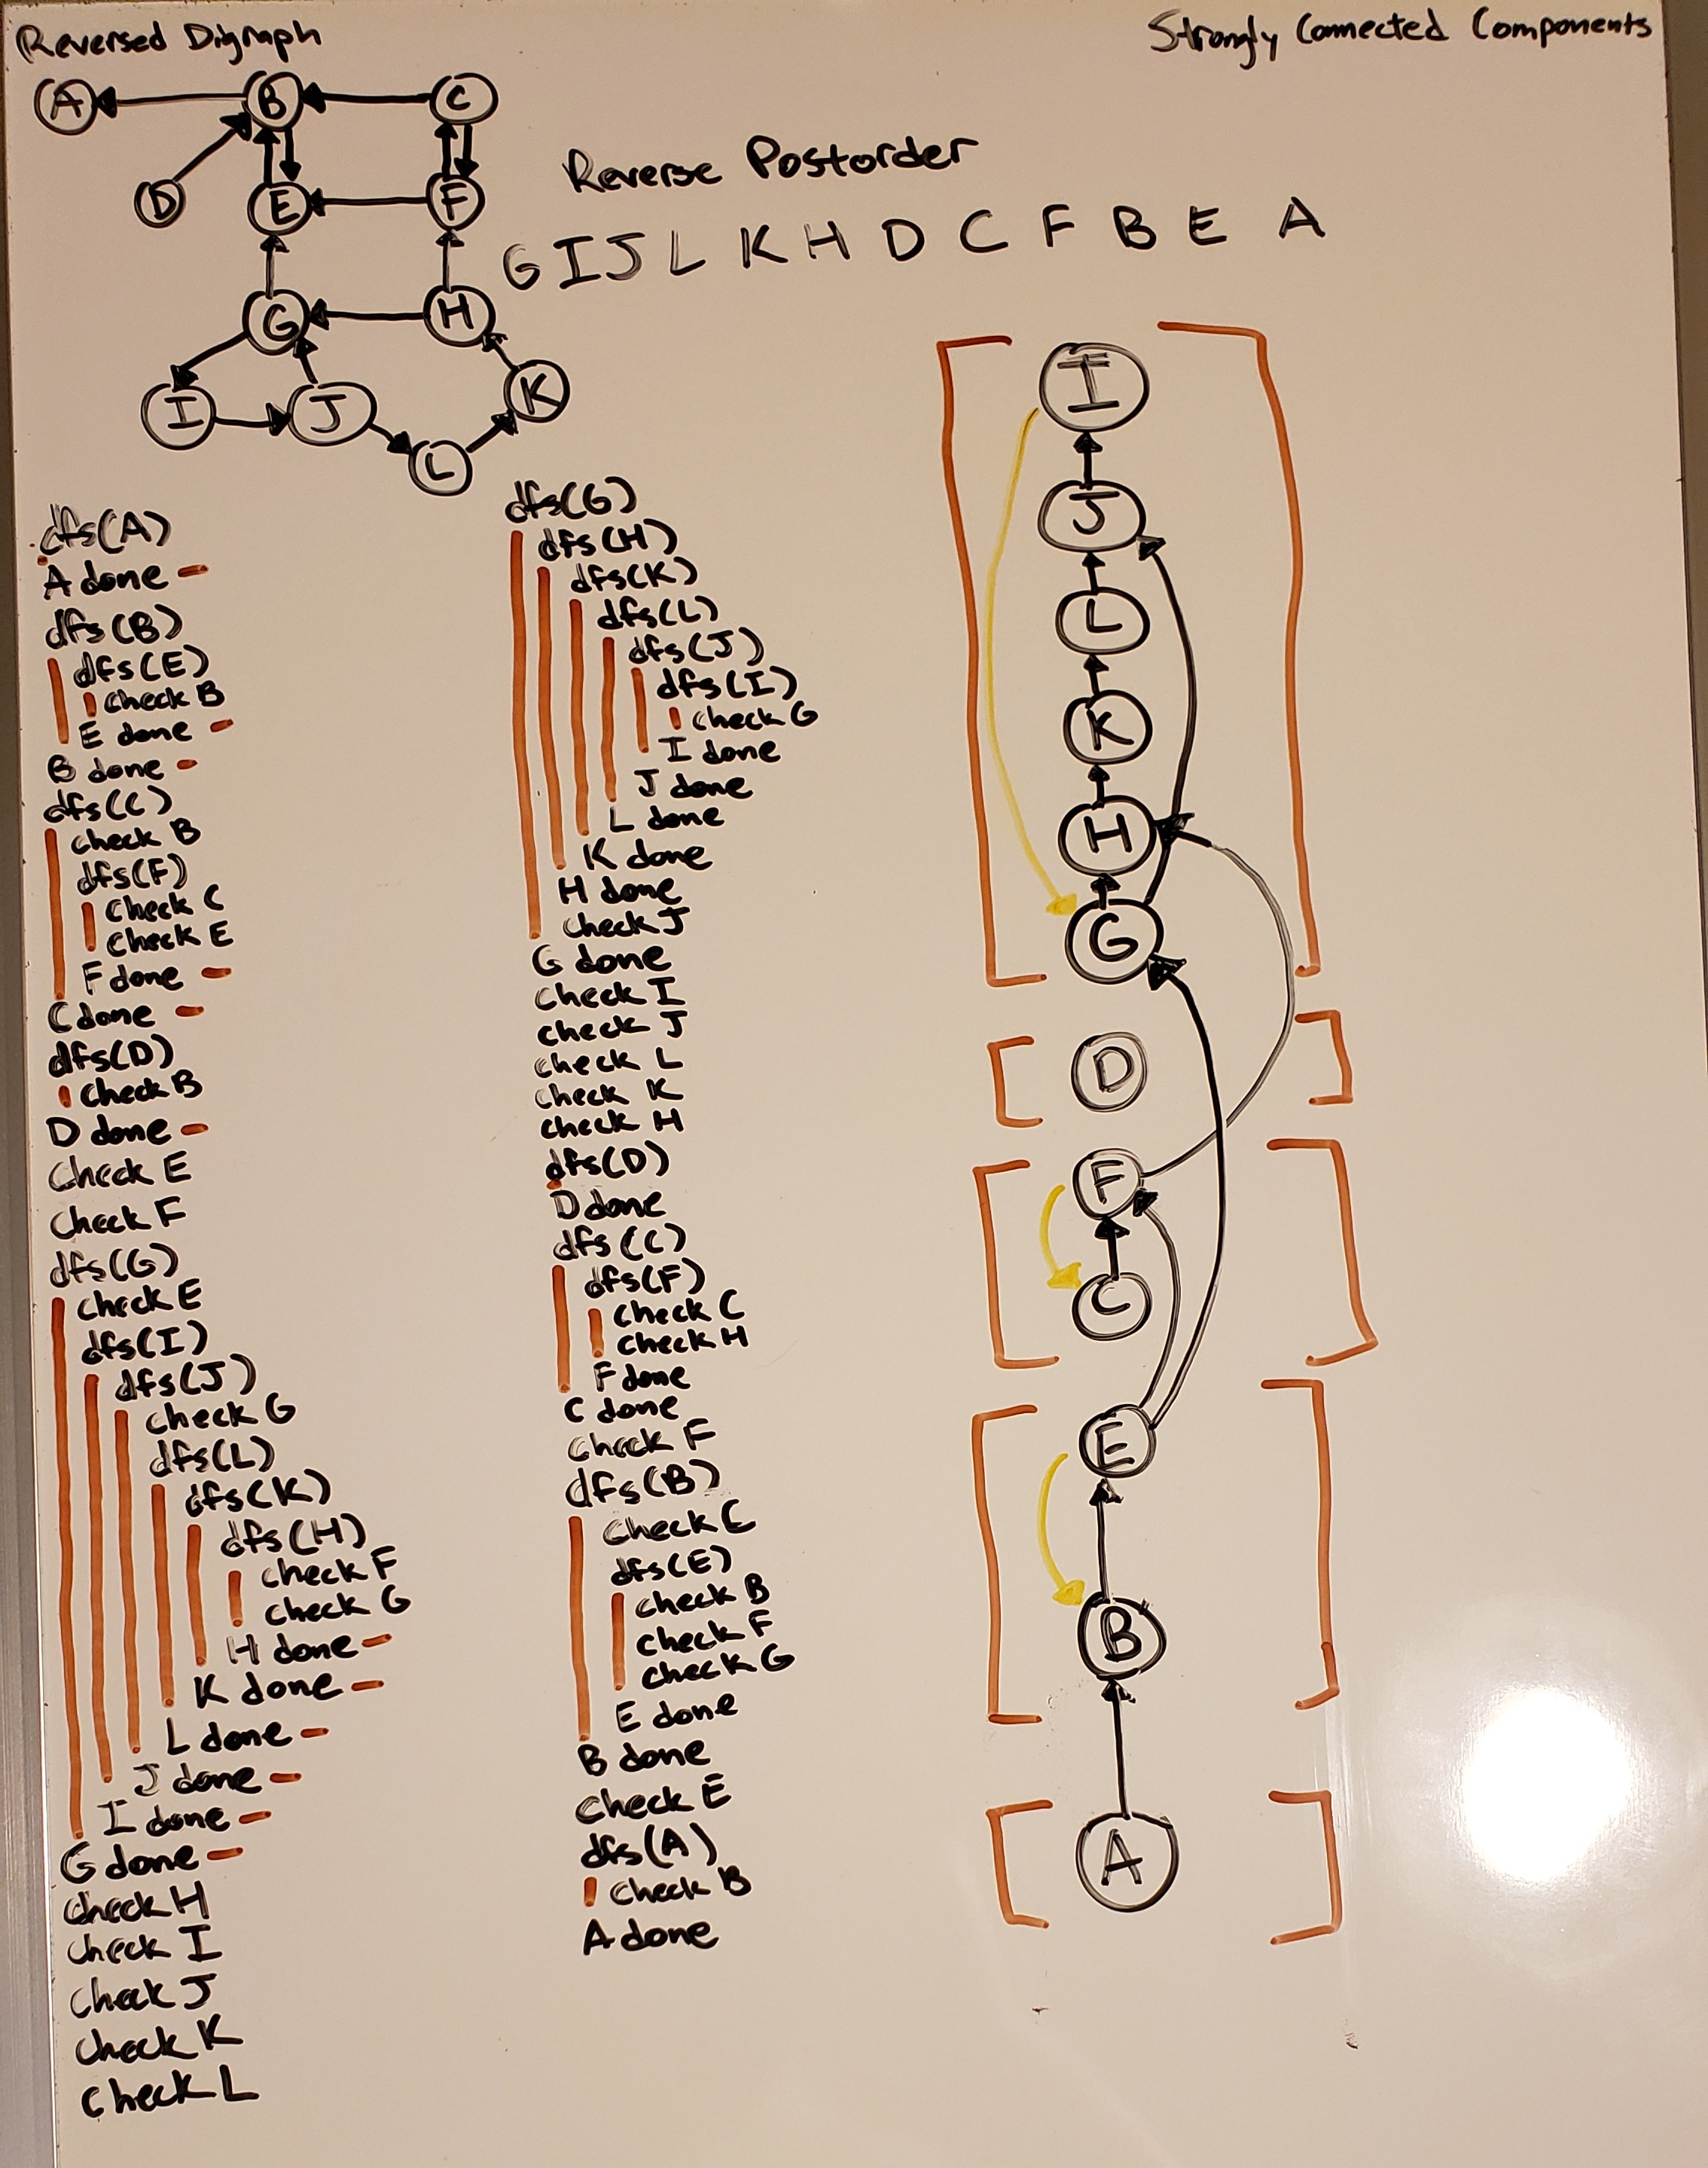 Reversed Digraph
Strongly Connected Components
A B C
D E F
G H
I J K
L
Reverse Postorder
G I J L K H D C F B E A
dfs(A)
A done -
dfs(B)
dfs(E)
check B
E done -
B done -
dfs(C)
check B
dfs(F)
check C
check E
F done -
C done -
dfs(D)
check B
D done -
Check E
Check F
dfs(G)
check E
dfs(I)
dfs(J)
check G
dfs(L)
dfs(K)
dfs(H)
check F
check G
H done -
K done -
L done -
J done -
I done -
G done -
check H
check I
check J
check K
check L
dfs(G)
dfs(H)
dfs(K)
dfs(L)
dfs(J)
dfs(I)
check G
I done
J done
L done
K done
H done
check J
G done
check I
check J
check L
check K
check H
dfs(D)
D done
dfs(C)
dfs(F)
check C
check H
F done
C done
check F
dfs(B)
check C
dfs(E)
check B
check F
check G
E done
B done
check E
dfs(A)
check B
A done
I
J
L
K
H
G
D
F
C
E
B
A